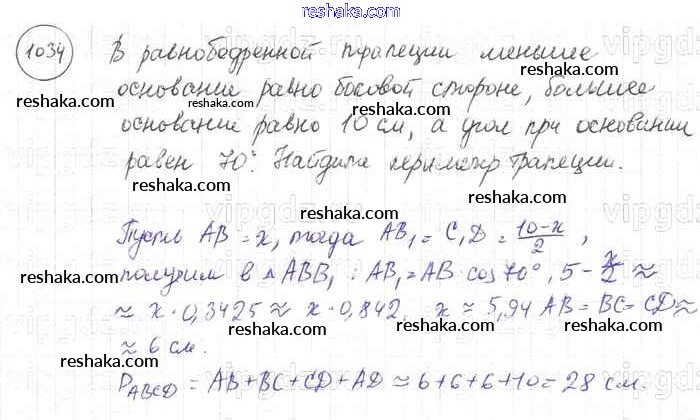 reshaka.com
1034 В равнобедренной трапеции меньшее
основание равно боковой стороне, большее
reshaka.com reshaka.com reshaka.com
основание равно 10 см, а угол при основании
равен 70°. Найдите периметр трапеции.
reshaka.com reshaka.com reshaka.com
Пусть AB = x, тогда AB₁ = C₁D = (10-x)/2 ,
reshaka.com reshaka.com reshaka.com
получим в △ABB₁ : AB₁ = AB · cos 70°, 5 - x/2 ≈
≈ x · 0,3425 ≈ x · 0,842, x ≈ 5,94 AB = BC = CD ≈
reshaka.com reshaka.com reshaka.com
≈ 6 см.
P_ABCD = AB + BC + CD + AD ≈ 6+6+6+10 = 28 см.
reshaka.com reshaka.com reshaka.com